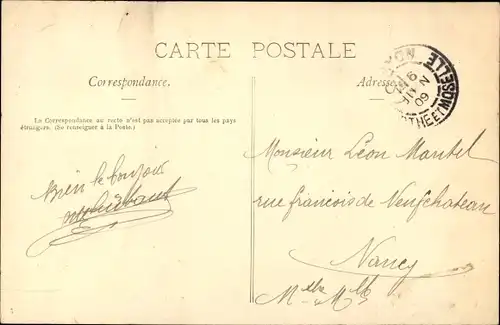 CARTE POSTALE
Correspondance.
Adresse
La Correspondance au recto n'est pas acceptée par tous les pays
étrangers. (Se renseigner à la Poste.)
09
THE ET MOSELLE
Monsieur Léon Mantel
rue francois de Neufchateau
Nancy
Mthe Mlle
bien le bonjour